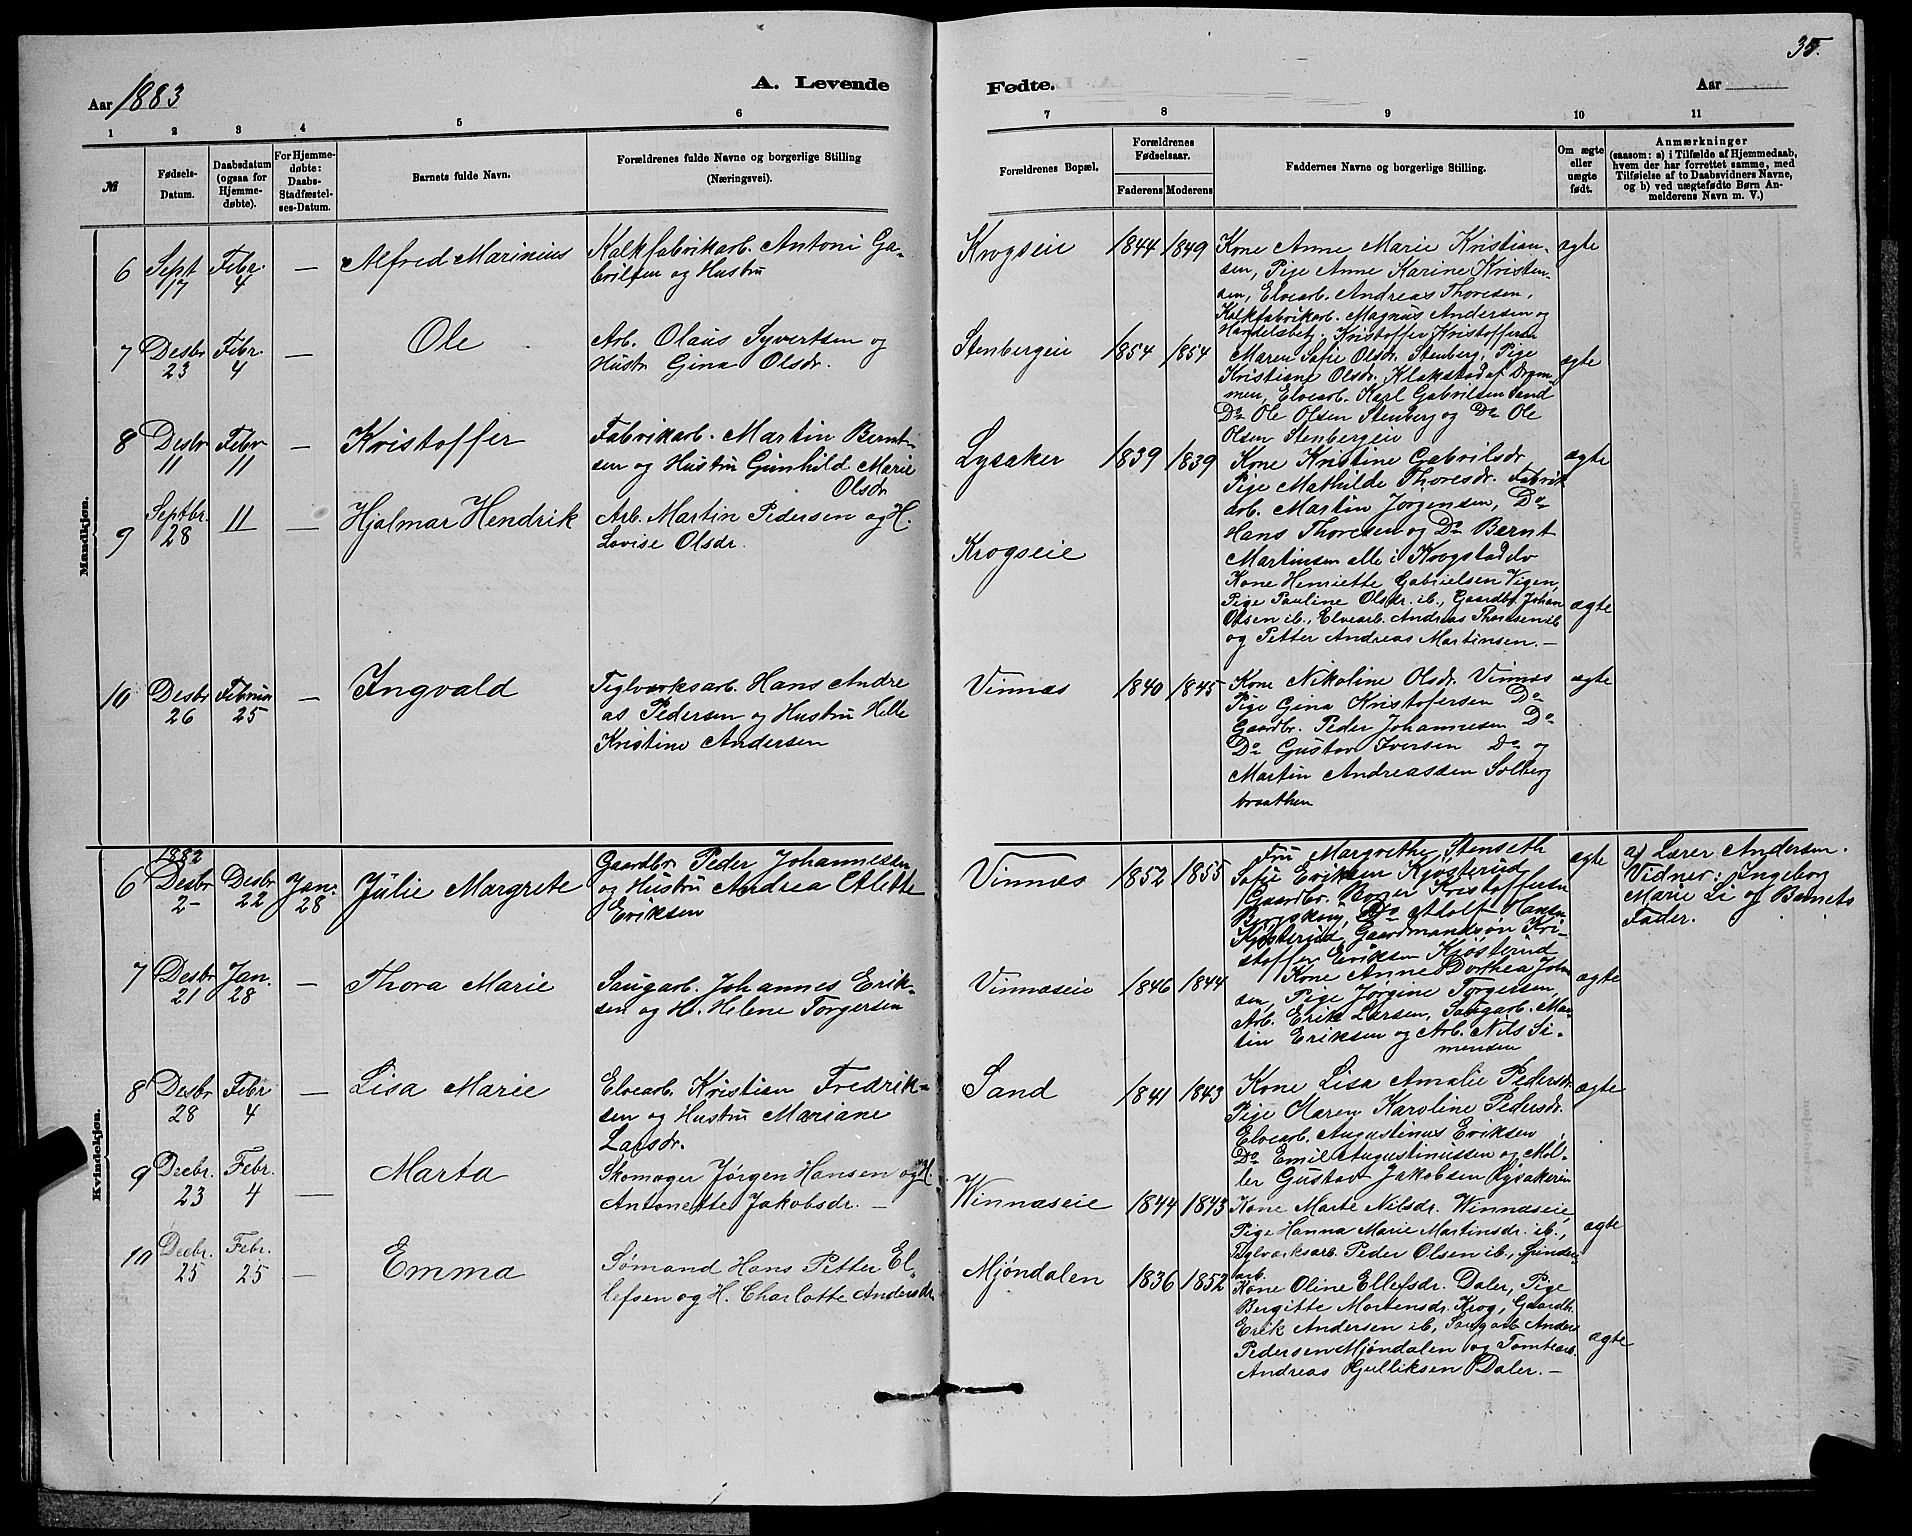 35.
Aar 1883
A. Levende
Fødte.
Aar
1
2
3
4
5
6
7
8
9
10
11
№
Fødsels-
Datum.
Daabsdatum
(ogsaa for
Hjemme-
døbte).
For Hjemme-
døbte:
Daabs-
Stadfæstel-
ses-Datum.
Barnets fulde Navn.
Forældrenes fulde Navne og borgerlige Stilling
(Næringsvei).
Forældrenes Bopæl.
Forældrenes
Fødselsaar.
Faderens
Moderens
Faddernes Navne og borgerlige Stilling.
Om ægte
eller
uægte
født.
Anmærkninger
(saasom: a) i Tilfælde af Hjemmedaab,
hvem der har forrettet samme, med
Tilføielse af to Daabsvidners Navne,
og b) ved uægtefødte Børn An-
melderens Navn m. V.)
Mandkjøn.
6
Sept
17
Febr.
4
—
Alfred Marinius
Kalkfabrikarb. Antoni Ga-
brilsen og Hustru
Krogseie
1844
1849
Kone Anne Marie Kristian-
sen, Pige Anne Karine Kristen-
sen, Elvearb. Andreas Thoresen,
Kalkfabrikarb. Magnus Andersen og
Handelsbetj. Kristoffer Kristoffersen
ægte
7
Desbr
23
Febr.
4
—
Ole
Arb. Olaus Syvertsen og
Hustr. Gina Olsdr.
Stenbergeie
1854
1854
Maren Sofie Olsdr. Stenberg, Pige
Kristiane Olsdr. Klakstad af Dram-
men, Elvearb. Karl Gabrilsen Sand
Do Ole Olsen Stenberg og Do Ole
Olsen Stenbergeie
ægte
8
Desbr
11
Febr
11
—
Kristoffer
Fabrikarb. Martin Bernt-
sen og Hustru Gunhild Marie
Olsdr
Lysaker
1839
1839
Kone Kristine Gabrilsdr
Pige Mathilde Thoresdr. Fabrik
arb. Martin Jørgensen, Do
Hans Thoresen og Do Bernt
Martinsen alle i Krogstadelv
ægte
9
Septbr.
28
11
—
Hjalmar Hendrik
Arb. Martin Pedersen og H.
Lovise Olsdr.
Krogseie
Kone Henriette Gabrielsen Vigen,
Pige Pauline Olsdr. ib., Gaardbr. Johan
Olsen ib., Elvearb. Andreas Thoresen ib
og Petter Andreas Martinsen. —
ægte
10
Desbr
26
Februar
25
—
Ingvald
Teglværksarb. Hans Andre
as Pedersen og Hustru Helle
Kristine Andersen
Vinnæs
1840
1845
Kone Nikoline Olsdr. Vinnæs
Pige Gina Kristofersen Do
Gaardbr. Peder Johannesen Do
Do Gustav Iversen Do og
Martin Andreassen Solberg
braathen
ægte
Kvindekjøn.
6
1882
Desbr
2-
Desbr
22
Jan.
28
Julie Margrete
Gaardbr. Peder Johannessen
og Hustru Andrea Alette
Eriksen
Vinnæs
1852
1855
Fru Margrethe Stenseth
Sofie Eriksen Kjøsterud,
Gaardbr. Borger Kristoffersen
Bergskoug, Do Adolf Hansen
Kjøsterud, Gaardmandsøn Kri-
stoffer Eriksen Kjøsterud
ægte
a) Lærer Andersen.
Vidner: Ingeborg
Marie Li og Barnets
Fader.
7
Desbr
21
Jan.
28
—
Thora Marie
Saugarb. Johannes Erik-
sen og H. Helene Torgersen
Vinnæseie
1846
1844
Kone Anne Dorthea John
sen, Pige Jørgine Torgersen,
Arb. Erik Larsen, Saugarb. Mar-
tin Eriksen og Arb. Nils Si-
mensen
ægte
8
Desbr
28
Febr
4
—
Lisa Marie
Elvearb. Kristian Fredrik-
sen og Hustru Mariane
Larsdr.
Sand
1841
1843
Kone Lisa Amalie Pedersdr
Pige Maren Karoline Pedersdr.
Elvearb. Augustinus Eriksen,
Do Emil Augustinussen og Møl-
ler Gustav Jakobsen Lysakereie
ægte
9
Decbr.
23
Febr.
4
—
Marta
Skomager Jørgen Hansen og H.
Antonette Jakobsdr. —
Winnæseie
1844
1843
Kone Marte Nilsdr. Winnæseie,
Pige Hanna Marie Martinsdr. ib.,
Teglværksarb. Peder Olsen ib.,
arb.
ægte
10
Decbr.
25
Febr.
25
—
Emma
Sømand Hans Petter El-
lefsen og H. Charlotte Andersdr.
Mjøndalen
1836
1852
Kone Oline Ellefsdr. Daler, Pige
Bergitte Mortensdr. Krog, Gaardbr.
Erik Andersen ib., Saugarb. Anders
Pedersen Mjøndalen og Tomtearb.
Andreas Gulliksen Daler. —
ægte